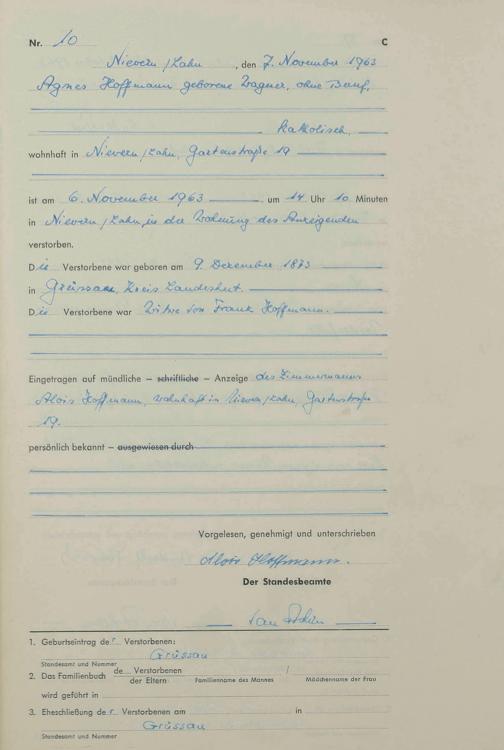 Nr. 10 C
Nievern/Lahn, den 7. November 1963
Agnes Hoffmann geborene Wagner, ohne Beruf,
katholisch,
wohnhaft in Nievern/Lahn, Gartenstraße 19
ist am 6. November 1963 um 14 Uhr 10 Minuten
in Nievern/Lahn, in der Wohnung des Anzeigenden
verstorben.
Die Verstorbene war geboren am 9. Dezember 1873
in Grüssau, Kreis Landeshut.
Die Verstorbene war Witwe von Frank Hoffmann.
Eingetragen auf mündliche – schriftliche – Anzeige des Zimmermanns
Alois Hoffmann, wohnhaft in Nievern/Lahn, Gartenstraße
19.
persönlich bekannt – ausgewiesen durch
Vorgelesen, genehmigt und unterschrieben
Alois Hoffmann.
Der Standesbeamte
1. Geburtseintrag der Verstorbenen:
Grüssau
Standesamt und Nummer
2. Das Familienbuch de Verstorbenen /
der Eltern Familienname des Mannes Mädchenname der Frau
wird geführt in
3. Eheschließung der Verstorbenen am in
Grüssau
Standesamt und Nummer